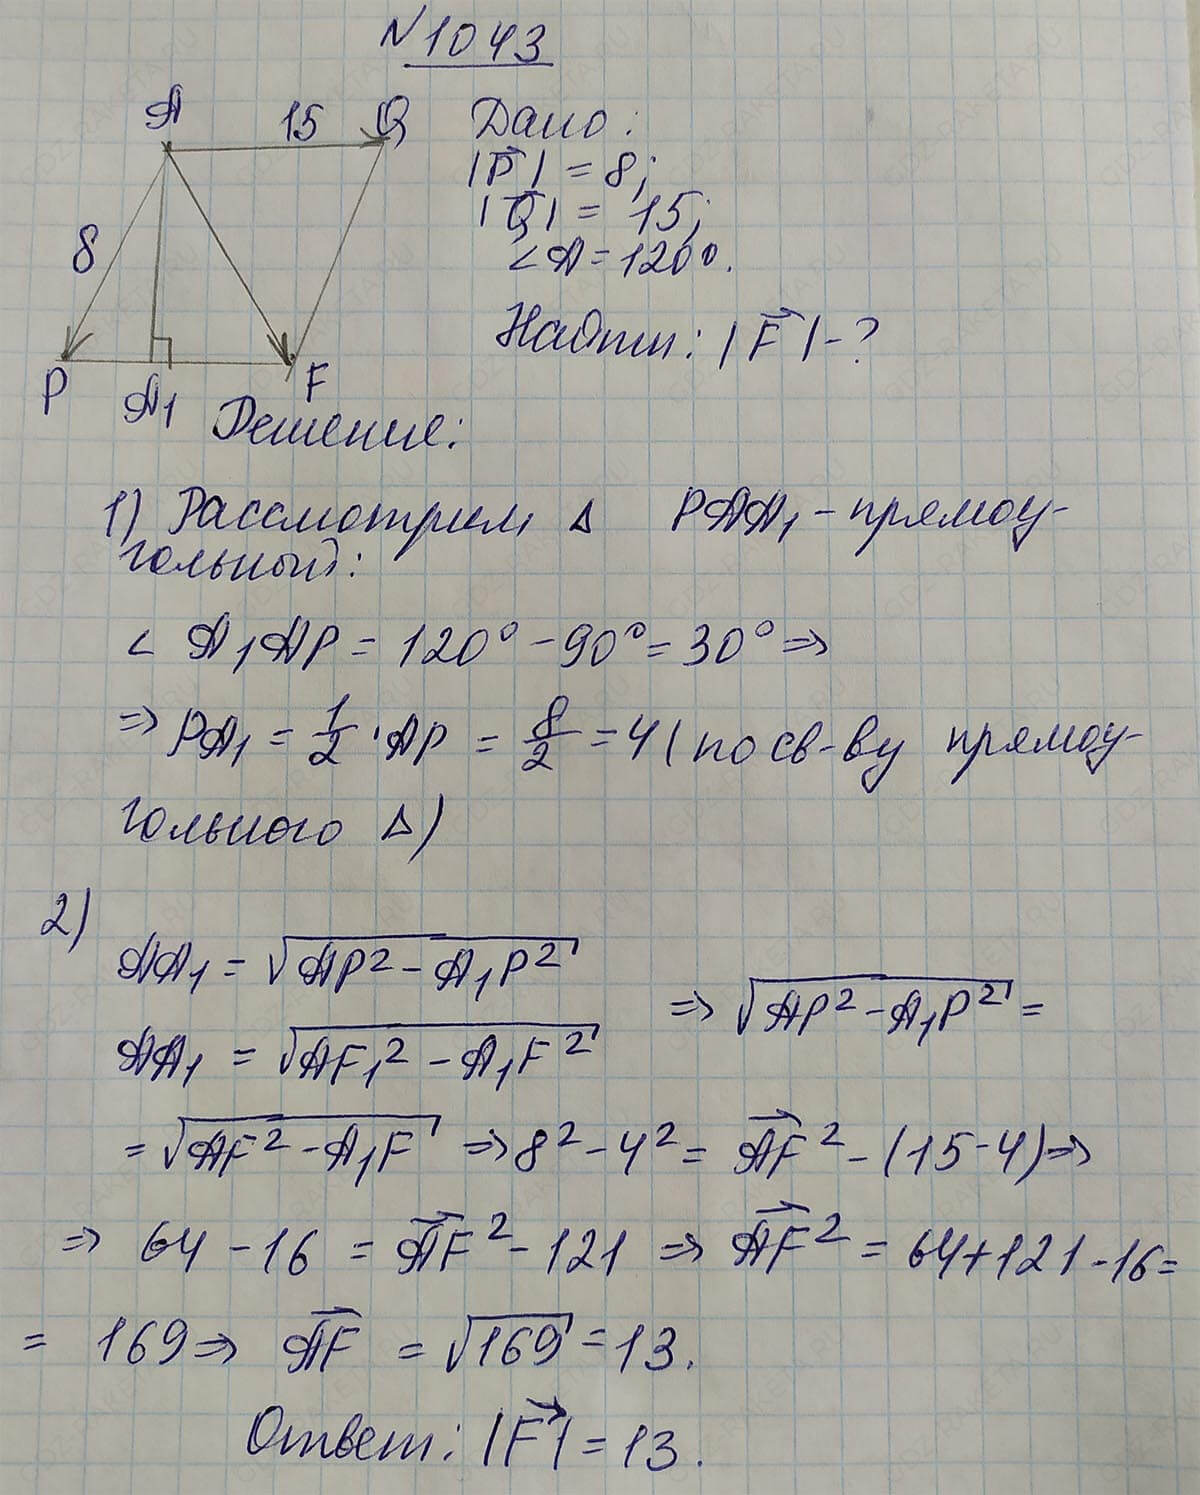 N1043
A 15 Q
8
P A₁ F
Дано:
|P⃗| = 8;
|Q⃗| = 15;
∠A = 120°.
Найти: |F⃗| - ?
Решение:
1) Рассмотрим Δ PAA₁ - прямоу-
гольный:
∠ A₁AP = 120° - 90° = 30° ⇒
⇒ PA₁ = 1/2 · AP = 8/2 = 4 (по св-ву прямоу-
гольного Δ)
2)
AA₁ = √(AP² - A₁P²)
AA₁ = √(AF₁² - A₁F²)
⇒ √(AP² - A₁P²) =
= √(AF² - A₁F) ⇒ 8² - 4² = A⃗F² - (15-4) ⇒
⇒ 64 - 16 = A⃗F² - 121 ⇒ A⃗F² = 64+121-16=
= 169 ⇒ A⃗F = √169 = 13.
Ответ: |F⃗| = 13.